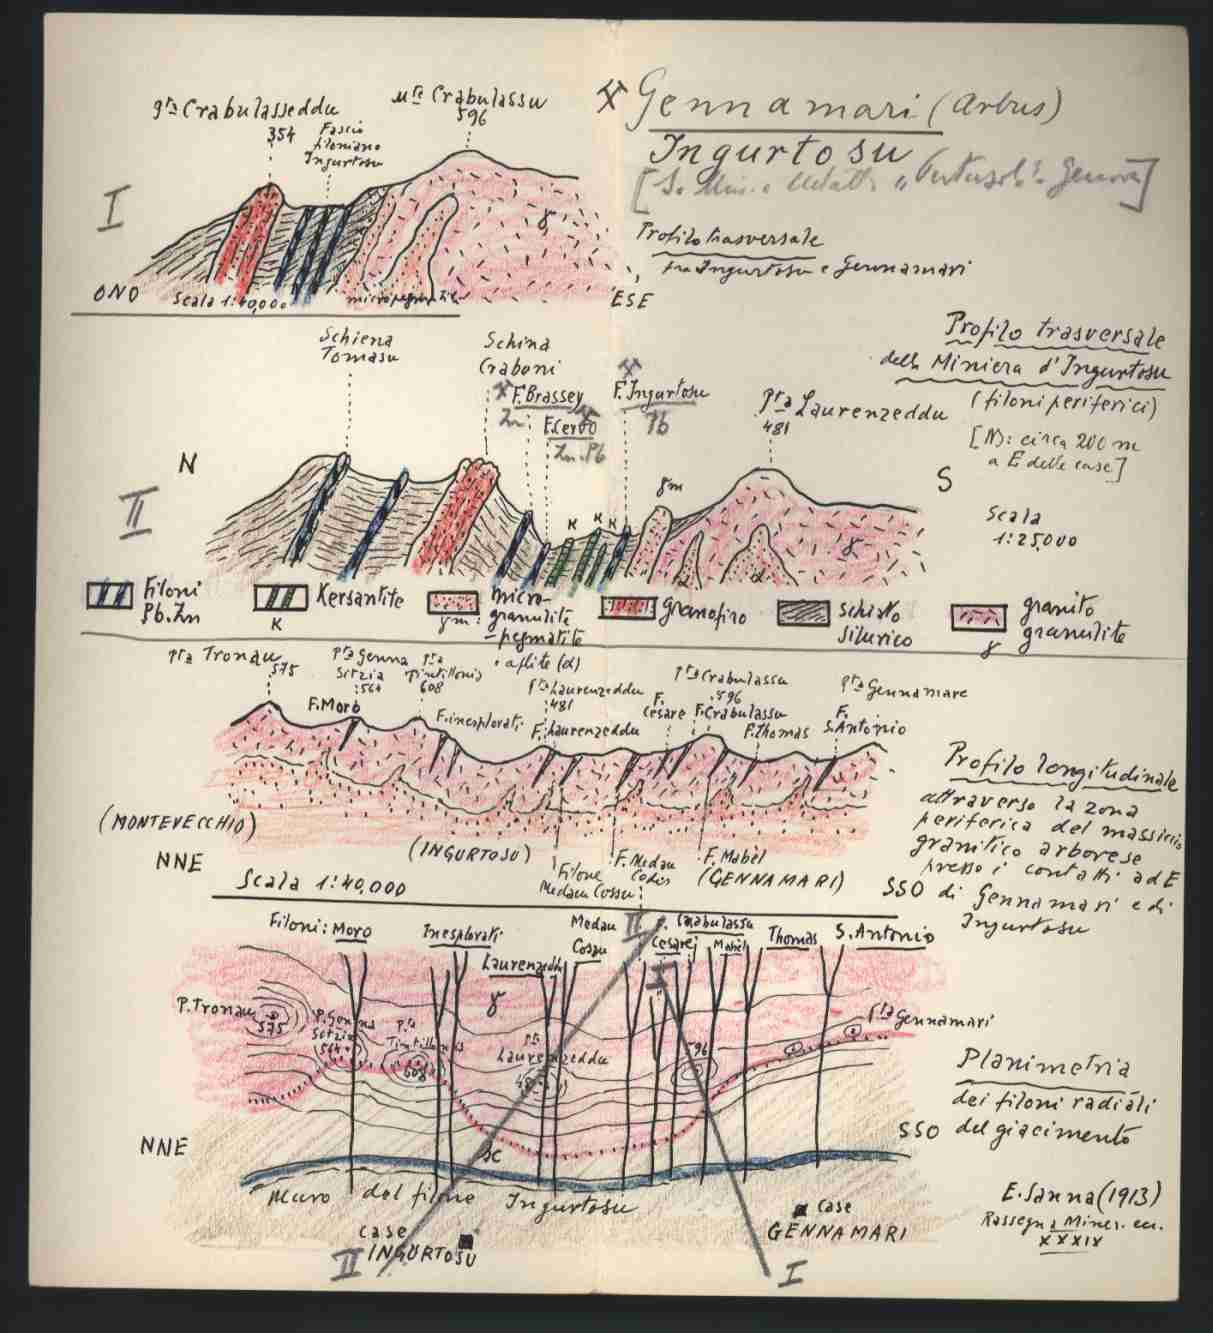 Gennamari (Arbus)
Ingurtosu
[So Min. e Metall. "Pertusola" - Genova]
Profilo trasversale
fra Ingurtosu e Gennamari
I
gta Crabulasseddu
354
Fascio
filoniano
Ingurtosu
mte Crabulassu
596
γ
ONO
Scala 1:40,000
micropegmatite
ESE
Profilo trasversale
della Miniera d'Ingurtosu
(filoni periferici)
[N: circa 200 m
a E delle case]
Scala
1:25,000
II
N
S
Schiena
Tomasu
Schina
Craboni
F. Brassey
Zn
F. Cervo
Zn-Pb
F. Ingurtosu
Pb
pta Laurenzeddu
481
K
K
K
γm
γ
α
Filoni
Pb.Zn
Kersantite
K
γm:
micro-
granulite
-pegmatite
aplite (α)
Granofiro
schisto
silurico
granito
granulite
γ
pta Tronau
575
pta Genna
Sitzia
564
pta
Tintillonis
608
F. Moro
F. inesplorati
pta Laurenzeddu
481
F. Laurenzeddu
F.
Cesare
pta Crabulassu
596
F. Crabulassu
F. Thomas
pta Gennamare
F.
S. Antonio
(MONTEVECCHIO)
NNE
(INGURTOSU)
Filone
Medau Cossu
F. Medau
F. Mabèl
(GENNAMARI)
SSO
Scala 1:40,000
Profilo longitudinale
attraverso la zona
periferica del massiccio
granitico arborese
presso i contatti ad E
di Gennamari e di
Ingurtosu
Filoni: Moro
Inesplorati
Laurenzeddu
Medau
Cossu
II
F. Crabulassu
Cesare
Mabèl
Thomas
S. Antonio
I
P. Tronau
575
P. Genna
Sitzia
564
pta
Tintillonis
608
γ
pta
Laurenzeddu
481
596
Pta Gennamari
NNE
SSO
sc
Muro del filone Ingurtosu
case
INGURTOSU
case
GENNAMARI
II
I
Planimetria
dei filoni radiali
del giacimento
E. Sanna (1913)
Rassegna Miner. ecc.
XXXIX